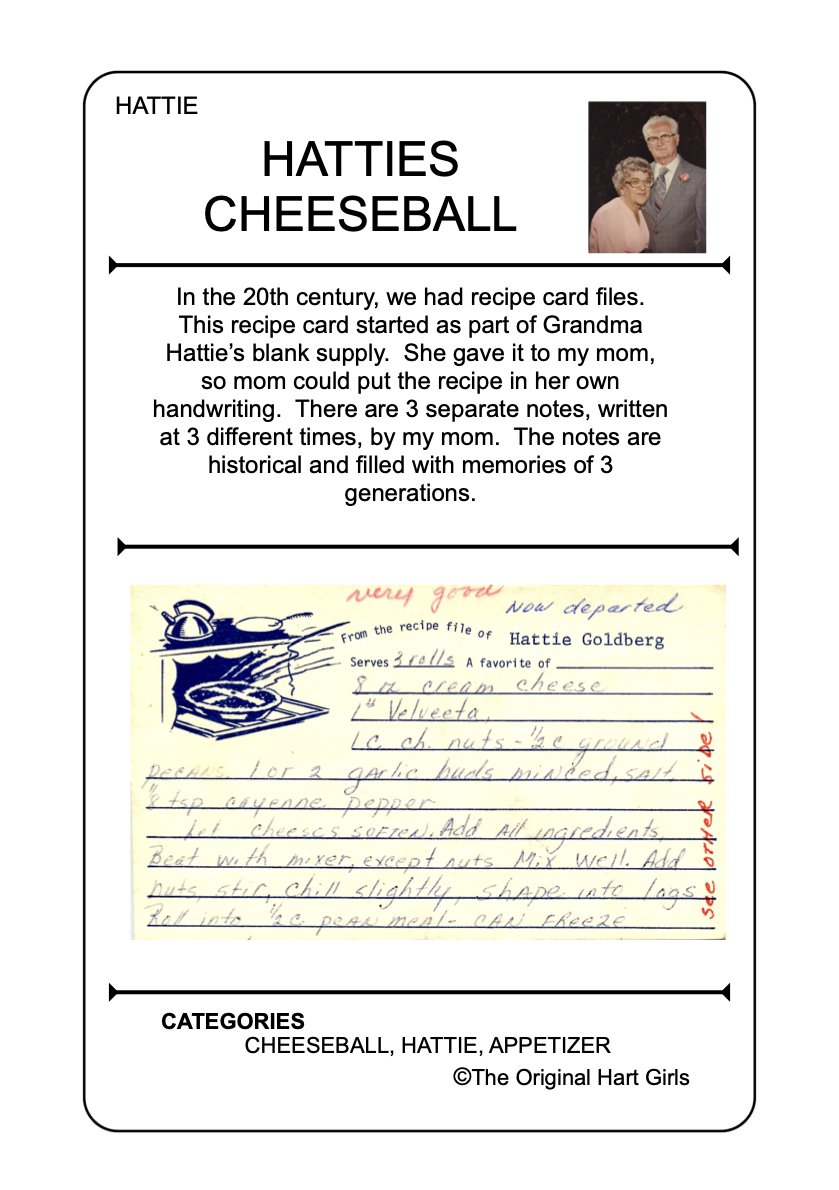 HATTIE
HATTIES
CHEESEBALL
In the 20th century, we had recipe card files.
This recipe card started as part of Grandma
Hattie’s blank supply.  She gave it to my mom,
so mom could put the recipe in her own
handwriting.  There are 3 separate notes, written
at 3 different times, by my mom.  The notes are
historical and filled with memories of 3
generations.
very good
Now departed
From the recipe file of Hattie Goldberg
Serves 3 rolls A favorite of
8 oz cream cheese
1# Velveeta
1 C ch. nuts - 1/2 C ground
pecans. 1 or 2 garlic buds minced, salt
1/8 tsp cayenne pepper
Let cheeses soften. Add All ingredients
Beat with mixer, except nuts Mix Well. Add
nuts, stir, chill slightly, shape into logs
Roll into 1/2 C pean meal - CAN FREEZE
see other side!
CATEGORIES
CHEESEBALL, HATTIE, APPETIZER
©The Original Hart Girls